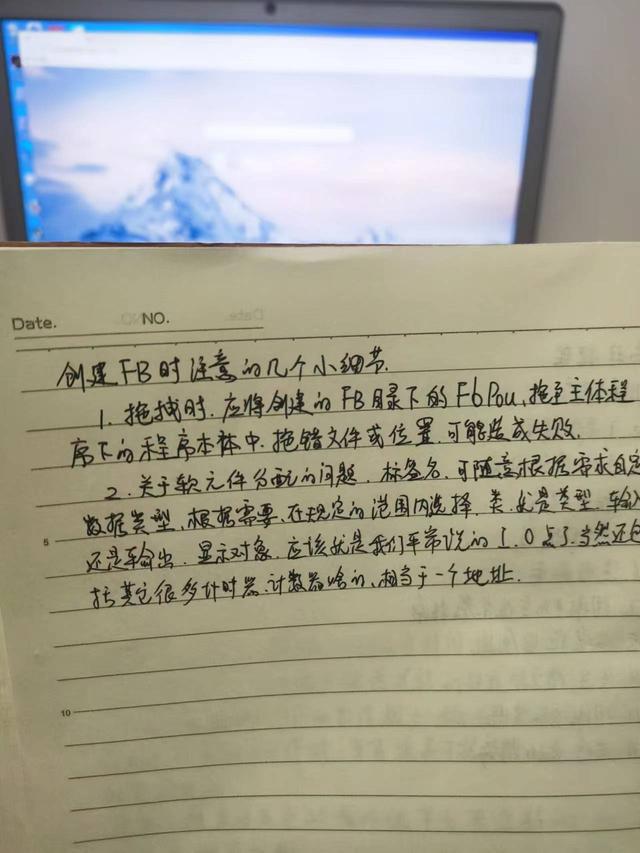 Date.
NO.
创建FB时注意的几个小细节.
1. 拖拽时,应将创建的FB目录下的FbPou,拖至主体程
序下的程序本体中.拖错文件或位置.可能造成失败.
2.关于软元件分配的问题.标签名,可随意根据需求自定
数据类型,根据需要,在规定的范围内选择.类.就是类型.输入
还是输出.显示对象.应该就是我们平常说的I.O点了.当然还包
括其它很多计时器.计数器啥的,相当于一个地址.
5
10